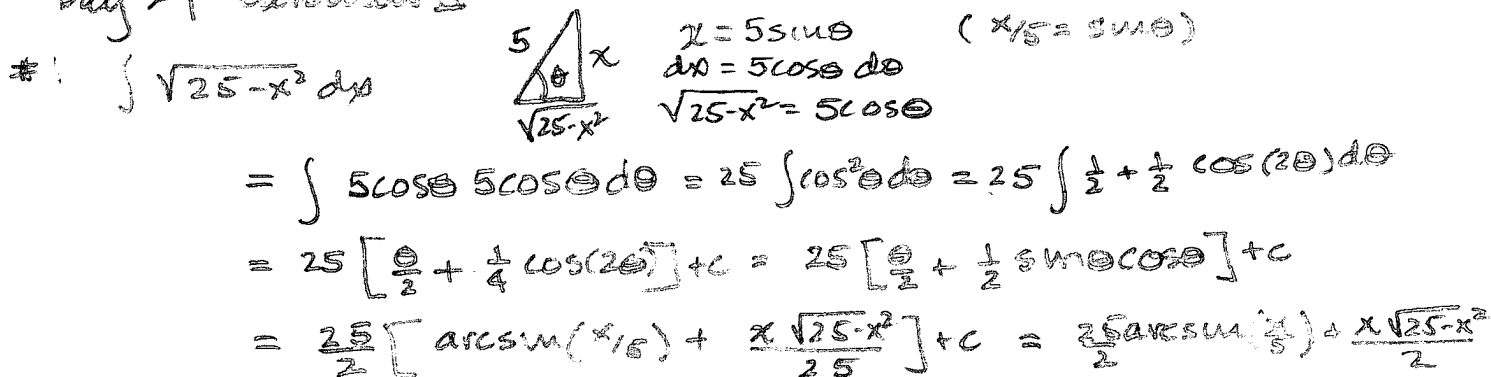 Day
5 x θ √25-x² x = 5sinθ (x/5 = sinθ)
#: ∫ √25-x² dx dx = 5cosθ dθ
√25-x² = 5cosθ
= ∫ 5cosθ 5cosθ dθ = 25 ∫cos²θ dθ = 25 ∫ 1/2 + 1/2 cos(2θ) dθ
= 25 [θ/2 + 1/4 cos(2θ)] + c = 25 [θ/2 + 1/2 sinθcosθ] + c
= 25/2 [ arcsin(x/5) + x √25-x²/25 ] + c = 25/2 arcsin(x/5) + x √25-x²/2